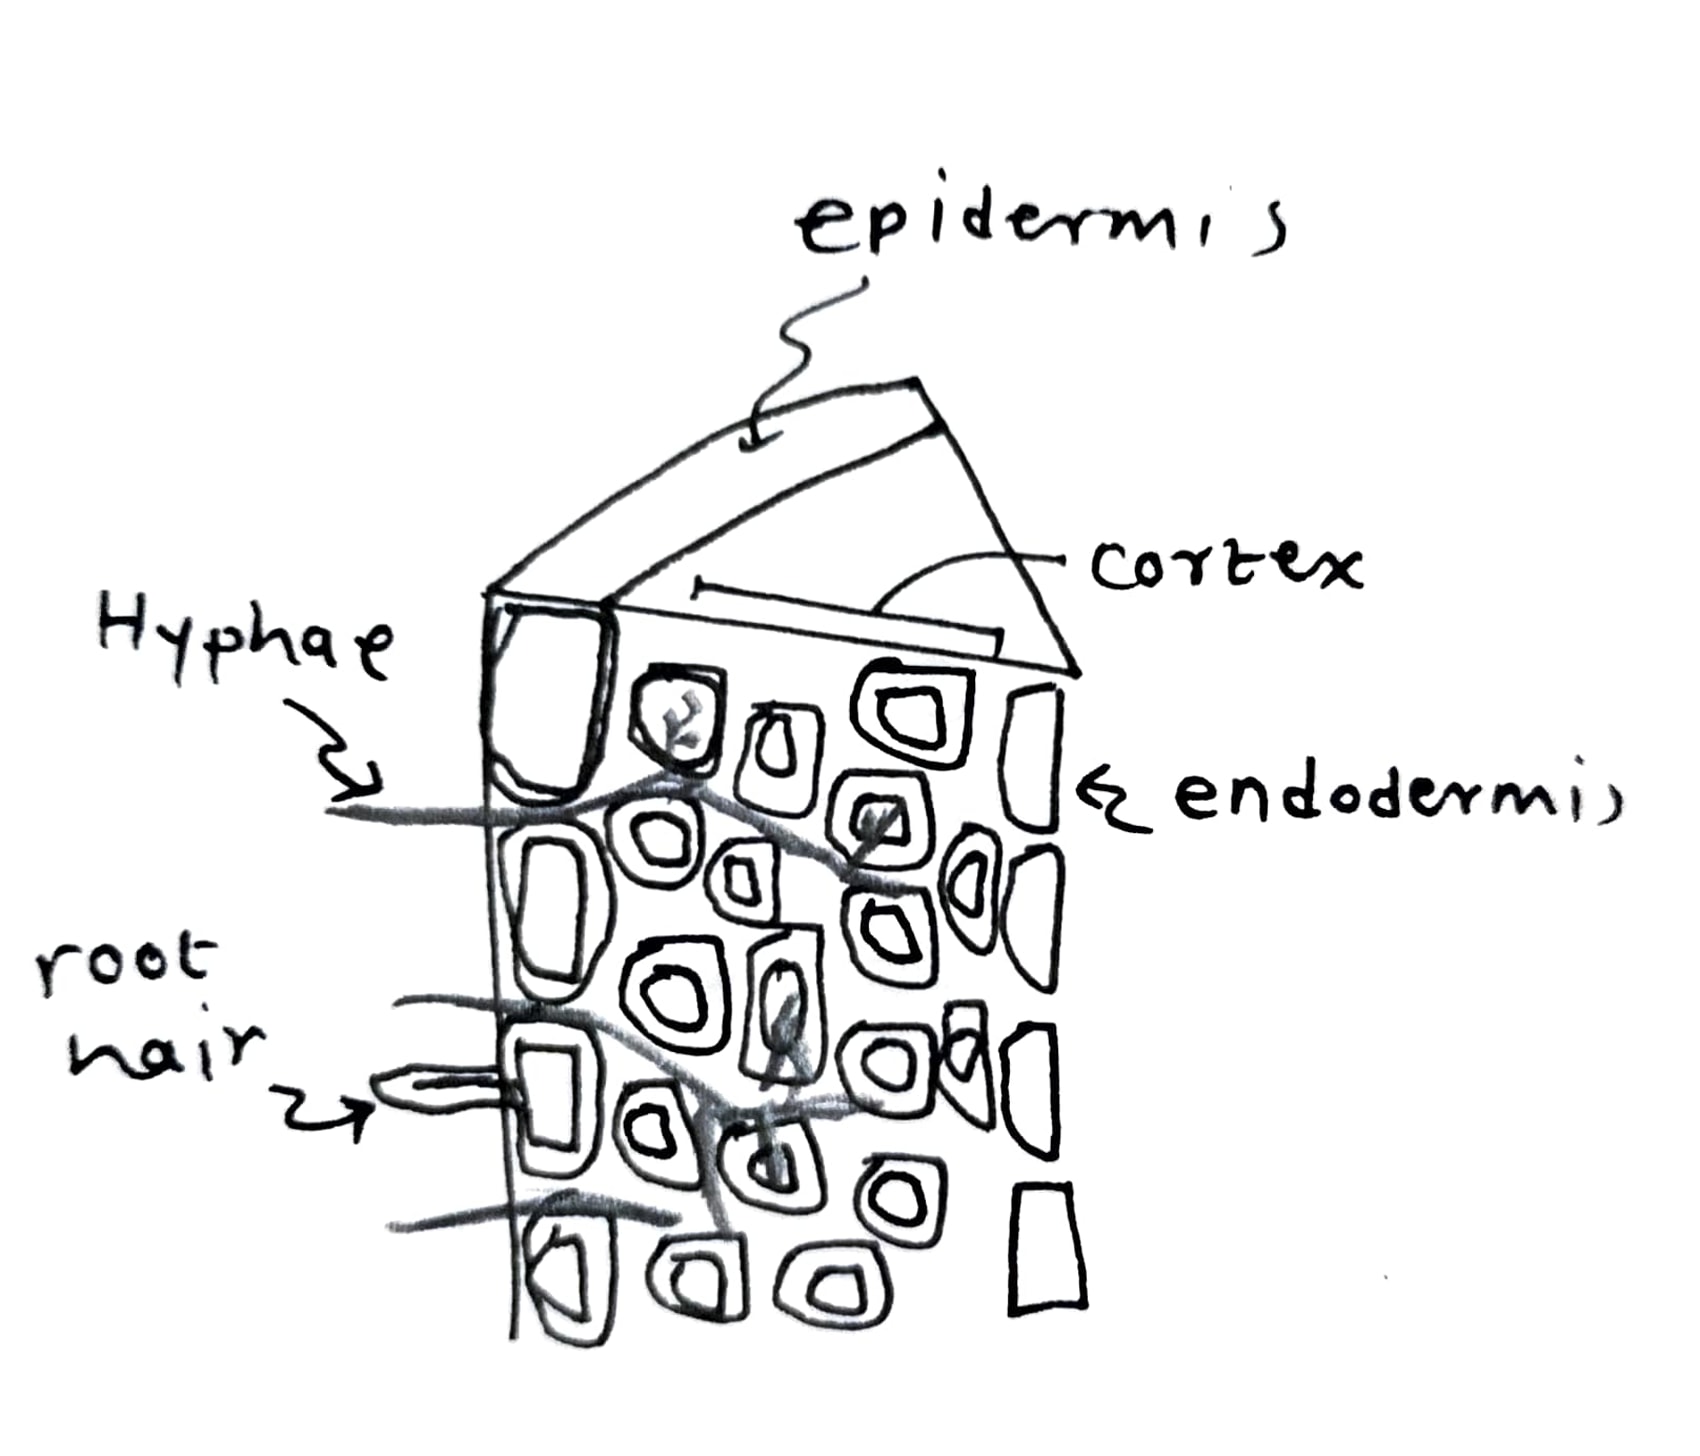 epidermis
cortex
Hyphae
endodermis
root
hair